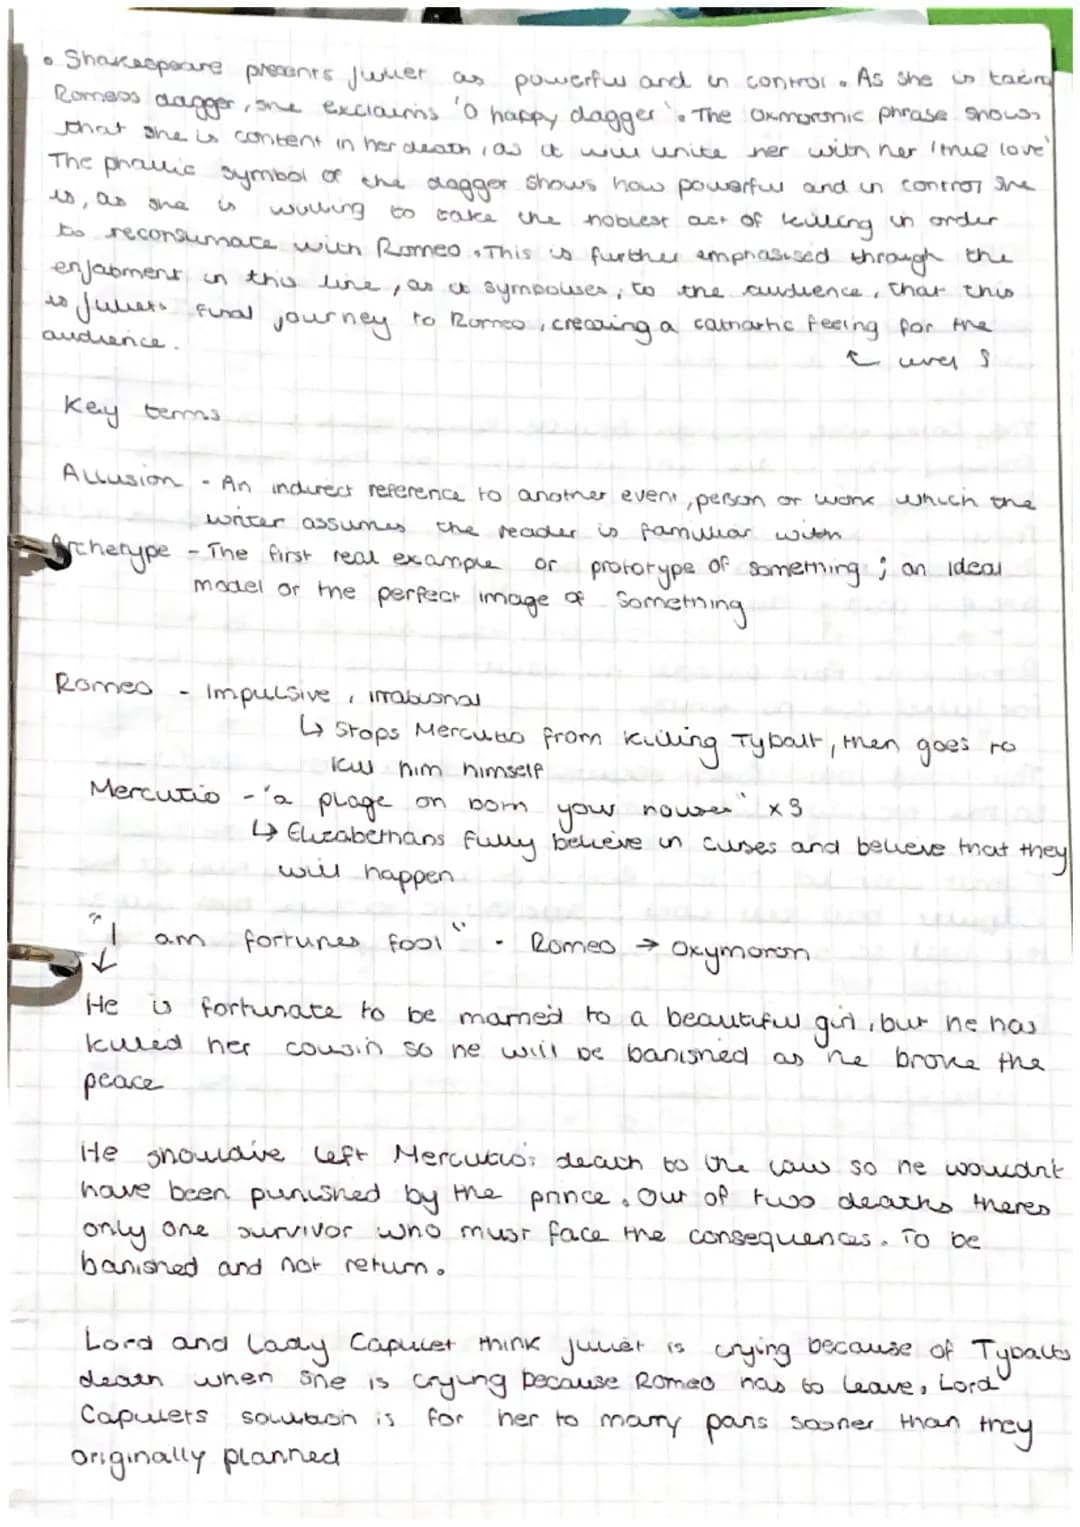 • Shakespeare presents Juliet as powerful and in control. As she is taking
Romeos dagger, she exclaims 'O happy dagger'. The oxmoronic phrase shows
that she is content in her death, as it will unite her with her 'true love'
The phallic symbol of the dagger shows how powerful and in control she
is, as she is willing to take the noblest act of killing in order
to reconsumate with Romeo. This is further emphasised through the
enjabment in this line, as it symbolises, to the audience, that this
is Juliets final journey to Romeo, creating a cathartic feeling for the
audience.
↖ level 8
Key terms
Allusion - An indirect reference to another event, person or work which the
writer assumes the reader is familiar with
Archetype - The first real example or prototype of something; an ideal
model or the perfect image of something
Romeo - Impulsive, irrational
↳ Stops Mercutio from killing Tybalt, then goes to
kill him himself
Mercutio - 'a plage on both your houses" x3
↳ Elizabethans fully believe in curses and believe that they
will happen
"I am fortunes fool" - Romeo → Oxymoron
↓
He is fortunate to be married to a beautiful girl, but he has
killed her cousin so he will be banished as he broke the
peace
He shouldive left Mercutio's death to the law so he wouldnt
have been punished by the prince. Out of two deaths theres
only one survivor who must face the consequences. To be
banished and not return.
Lord and Lady Capulet think Juliet is crying because of Tybalts
death when she is crying because Romeo has to leave. Lord
Capulets solution is for her to marry paris sooner than they
originally planned